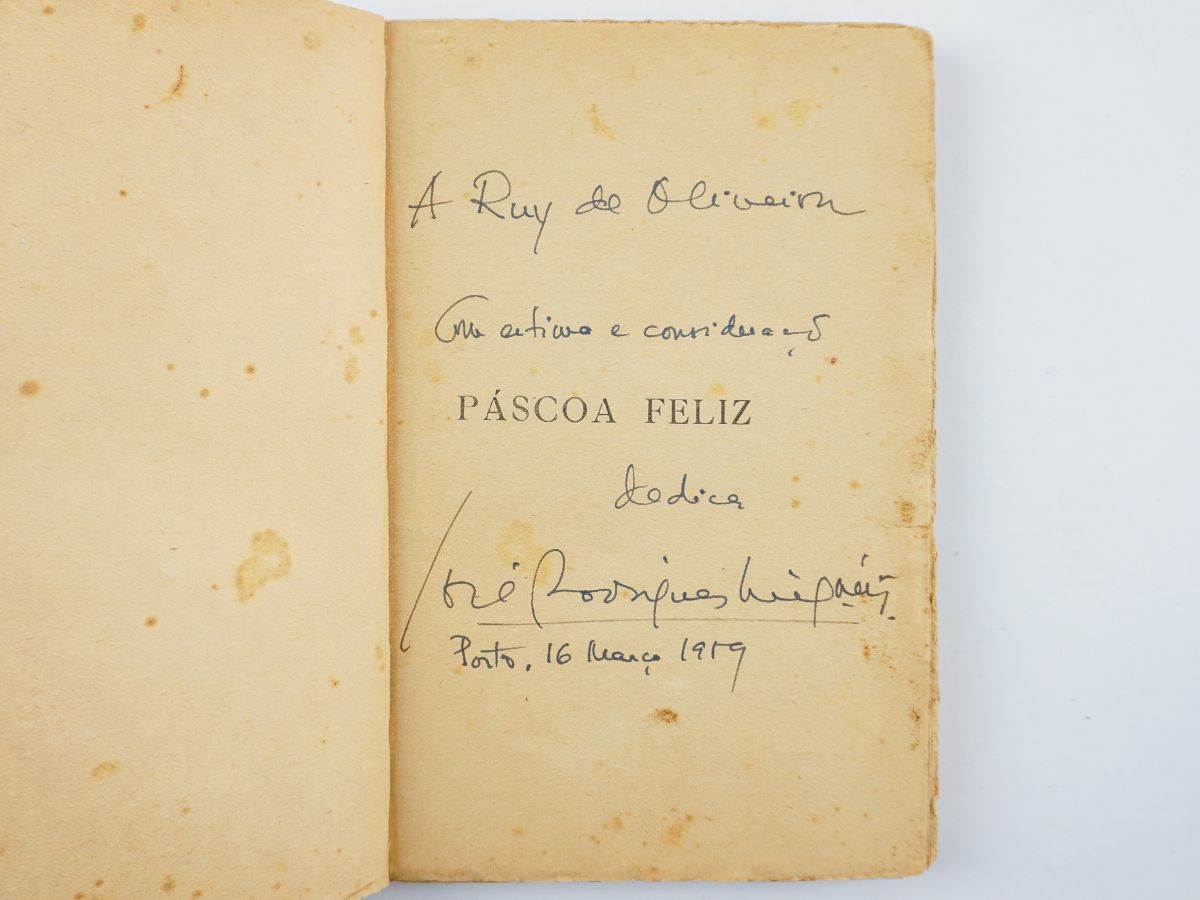 A Ruy de Oliveira
Com estima e consideração
PÁSCOA FELIZ
dedica
José Rodrigues Miguéis.
Porto, 16 Março 1959